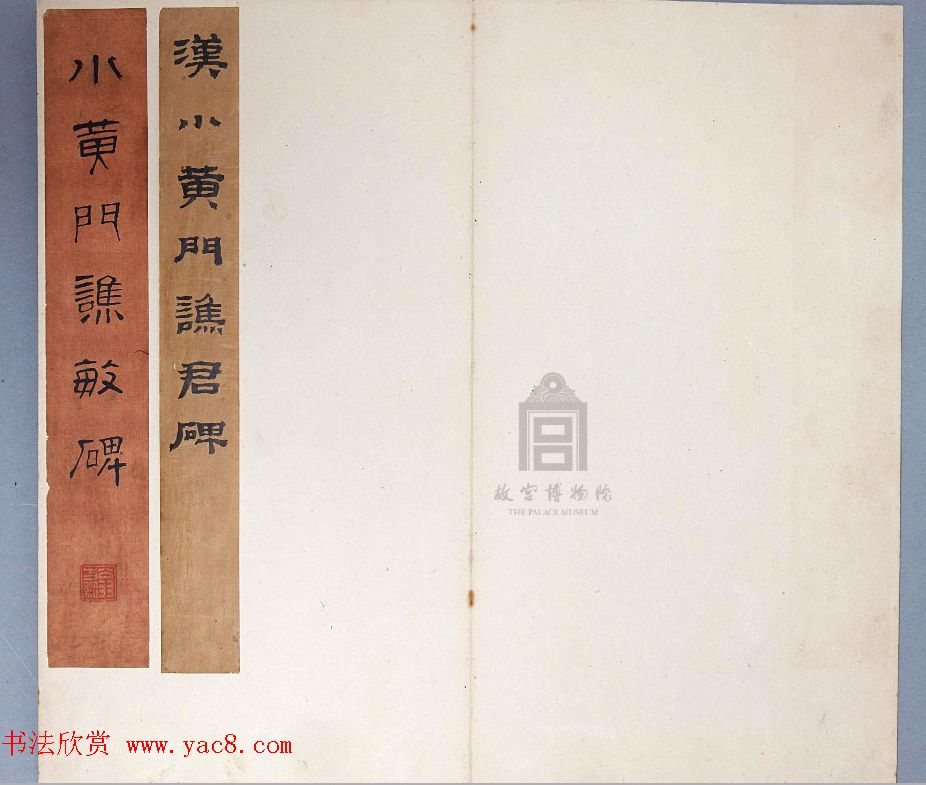 漢小黃門譙君碑
小黃門譙敏碑
故宫博物院
THE PALACE MUSEUM
书法欣赏 www.yac8.com